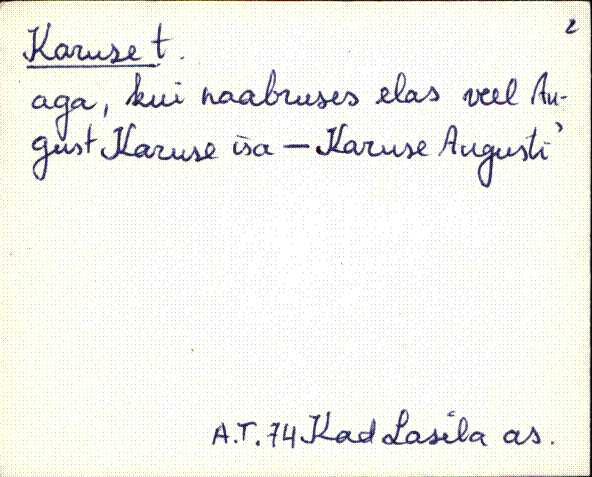 2
Karuse t.
aga, kui naabruses elas veel Au-
gust Karuse isa — Karuse Augusti'
A.T. 74 Kad Lasila as.